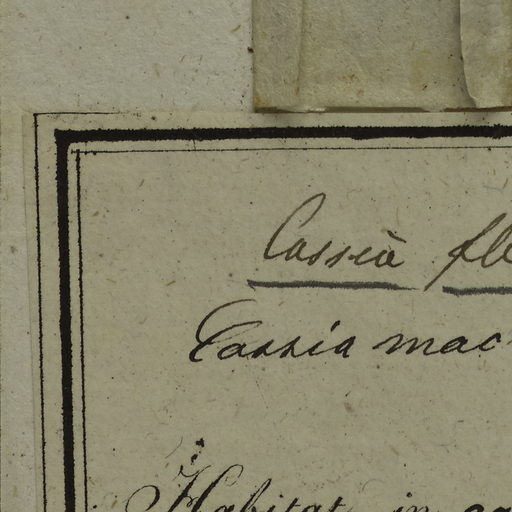 Cassia fle
Cassia mac
Habitat in